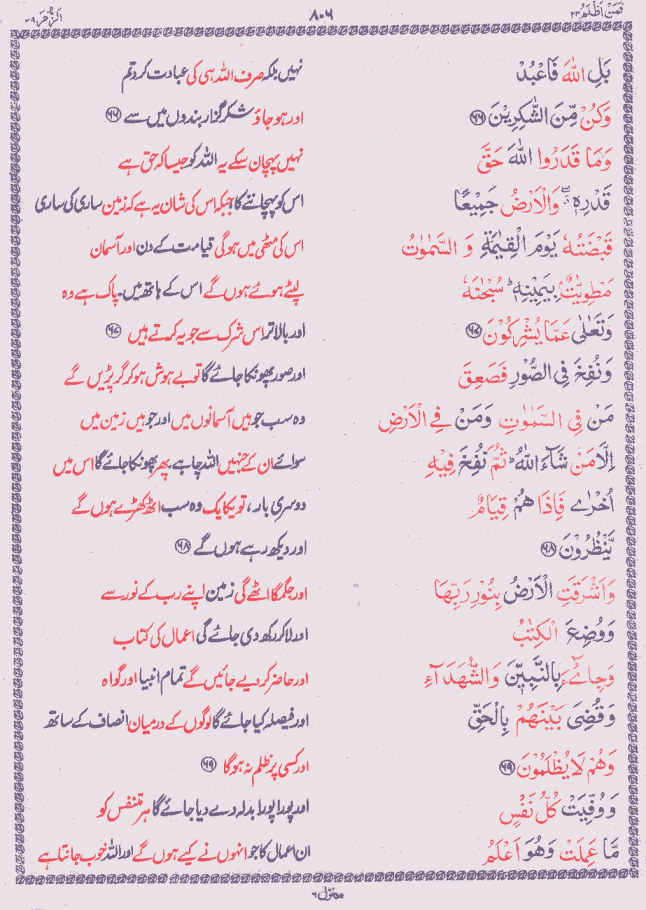 فَمَنْ اَظْلَمُ ۲۴
۸۰۶
اَلزُّمَر ۳۹
بَلِ اللّٰهَ فَاعْبُدْ
نہیں بلکہ صرف اللہ ہی کی عبادت کرو تم
وَكُنْ مِّنَ الشّٰكِرِيْنَ ۶۶
اور ہو جاؤ شکر گزار بندوں میں سے ۶۶
وَمَا قَدَرُوا اللّٰهَ حَقَّ
نہیں پہچان سکے یہ اللہ کو جیسا کہ حق ہے
قَدْرِهٖ ۖ وَالْاَرْضُ جَمِيْعًا
اس کو پہچاننے کا جبکہ اس کی شان یہ ہے کہ زمین ساری کی ساری
قَبْضَتُهٗ يَوْمَ الْقِيٰمَةِ وَ السَّمٰوٰتُ
اس کی مٹھی میں ہو گی قیامت کے دن اور آسمان
مَطْوِيّٰتٌۢ بِيَمِيْنِهٖ ؕ سُبْحٰنَهٗ
لپٹے ہوئے ہوں گے اس کے ہاتھ میں۔ پاک ہے وہ
وَتَعٰلٰى عَمَّا يُشْرِكُوْنَ ۶۷
اور بالا تر اس شرک سے جو یہ کرتے ہیں ۶۷
وَنُفِخَ فِى الصُّوْرِ فَصَعِقَ
اور صور پھونکا جائے گا تو بے ہوش ہو کر گر پڑیں گے
مَنْ فِى السَّمٰوٰتِ وَمَنْ فِى الْاَرْضِ
وہ سب جو ہیں آسمانوں میں اور جو ہیں زمین میں
اِلَّا مَنْ شَآءَ اللّٰهُ ؕ ثُمَّ نُفِخَ فِيْهِ
سوائے ان کے جنہیں اللہ چاہے پھر پھونکا جائے گا اس میں
اُخْرٰى فَاِذَا هُمْ قِيَامٌ
دوسری بار، تو یکایک وہ سب اٹھ کھڑے ہوں گے
يَّنْظُرُوْنَ ۶۸
اور دیکھ رہے ہوں گے ۶۸
وَاَشْرَقَتِ الْاَرْضُ بِنُوْرِ رَبِّهَا
اور جگمگا اٹھے گی زمین اپنے رب کے نور سے
وَوُضِعَ الْكِتٰبُ
اور لا کر رکھ دی جائے گی اعمال کی کتاب
وَجِاىْٓءَ بِالنَّبِيّٖنَ وَالشُّهَدَآءِ
اور حاضر کر دیے جائیں گے تمام انبیا اور گواہ
وَقُضِىَ بَيْنَهُمْ بِالْحَقِّ
اور فیصلہ کیا جائے گا لوگوں کے درمیان انصاف کے ساتھ
وَهُمْ لَا يُظْلَمُوْنَ ۶۹
اور کسی پر ظلم نہ ہو گا ۶۹
وَوُفِّيَتْ كُلُّ نَفْسٍ
اور پورا پورا بدلہ دے دیا جائے گا ہر متنفس کو
مَّا عَمِلَتْ وَهُوَ اَعْلَمُ
ان اعمال کا جو انہوں نے کیے ہوں گے اور اللہ خوب جانتا ہے
منزل ۶